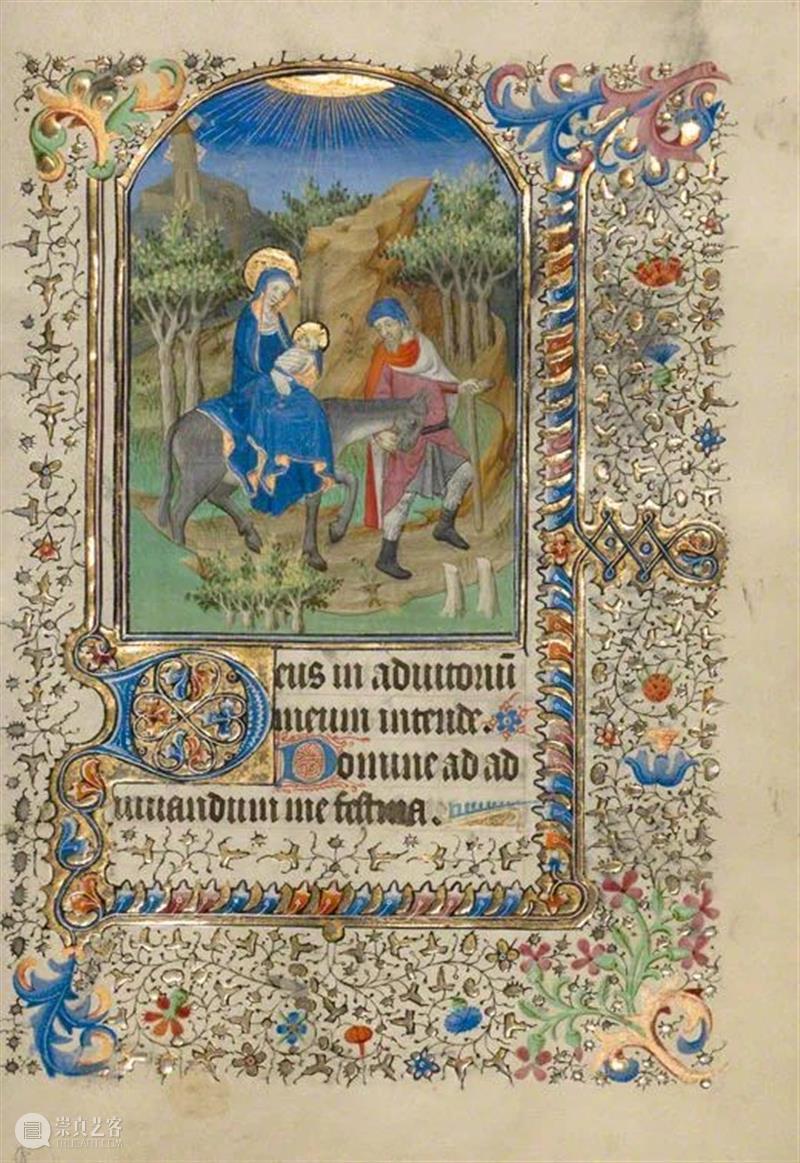 Deus in adiutoriū
meum intende.
Domine ad ad
iuuandum me festina.
崇真艺客
TRUEART.COM